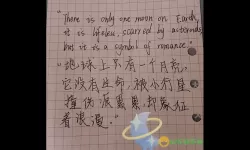 "There is only one moon on Earth,
it is lifeless, scarred by asteroids,
but it is a symbol of romance"
"地球上只有一个月亮,
它没有生命,被小行星
撞伤痕累累,却象征
着浪漫。"